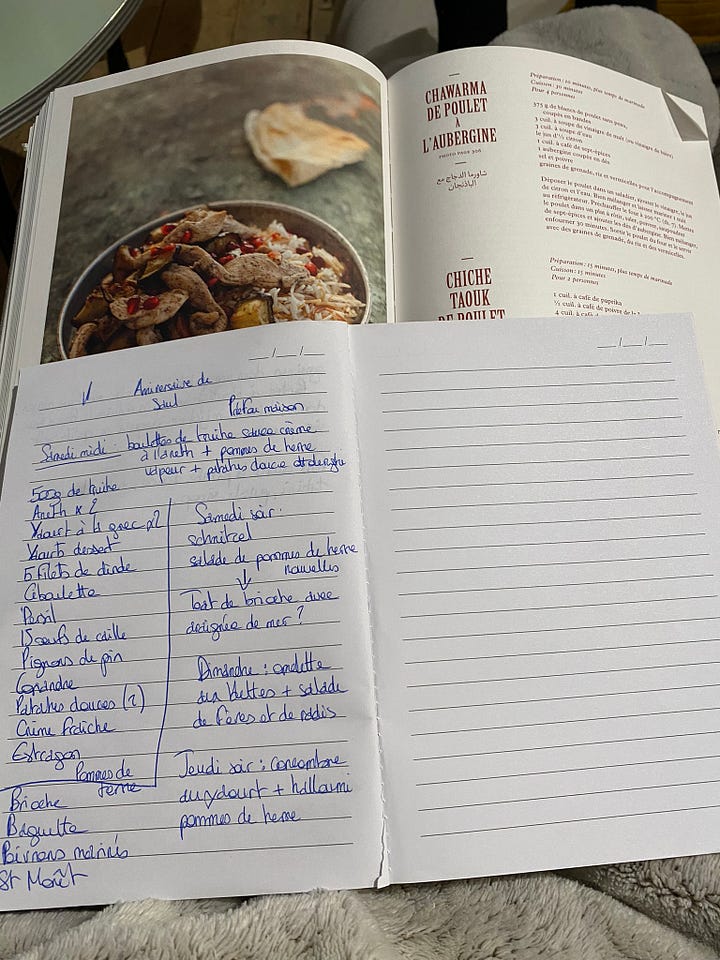 CHAWARMA
DE POULET
À
L'AUBERGINE
PHOTO PAGE 306
شاورما الدجاج مع
الباذنجان
Préparation : 10 minutes, plus temps de marinade
Cuisson : 30 minutes
Pour 4 personnes
375 g de blancs de poulet sans peau,
coupés en bandes
3 cuil. à soupe de vinaigre de malt (ou vinaigre de bière)
3 cuil. à soupe d'eau
le jus d'½ citron
1 cuil. à café de sept-épices
1 aubergine coupée en dés
sel et poivre
graines de grenade, riz et vermicelles pour l'accompagnement
Déposez le poulet dans un saladier, ajoutez le vinaigre, le jus
de citron et l'eau. Bien mélanger et laisser mariner 1 nuit
au réfrigérateur. Préchauffez le four à 200 °C (th. 7). Mettez
le poulet dans un plat à rôtir, salez, poivrez, saupoudrez
de sept-épices et ajoutez les dés d'aubergine. Bien mélanger,
enfourner 30 minutes. Sortir le poulet du four et le servir
avec des graines de grenade, du riz et des vermicelles.
CHICHE
TAOUK
DE POULET
Préparation : 15 minutes, plus temps de marinade
Cuisson : 15 minutes
Pour 2 personnes
1 cuil. à café de paprika
½ cuil. à café de poivre de la
4 cuil. à café
Anniversaire de
Saul
maison
Samedi midi : boulettes de truite sauce crème
à l'aneth + pommes de terre
vapeur + patates douce
500g de truite
Aneth x 2
Ydourt à la grec x2
Yaourts dessert
5 filets de dinde
Ciboulette
Persil
15 oeufs de caille
Pignons de pin
Coriandre
Patates douces (2)
Crème fraîche
Estragon
Pommes de
terre
Brioche
Baguette
Poivrons marinés
St Morêt
Samedi soir :
schnitzel
salade de pommes de terre
nouvelles
↓
Toast de brioche avec
araignée de mer ?
Dimanche : omelette
aux blettes + salade
de fèves et de radis
Jeudi soir : concombre
au ydourt + halloumi
pommes de terre